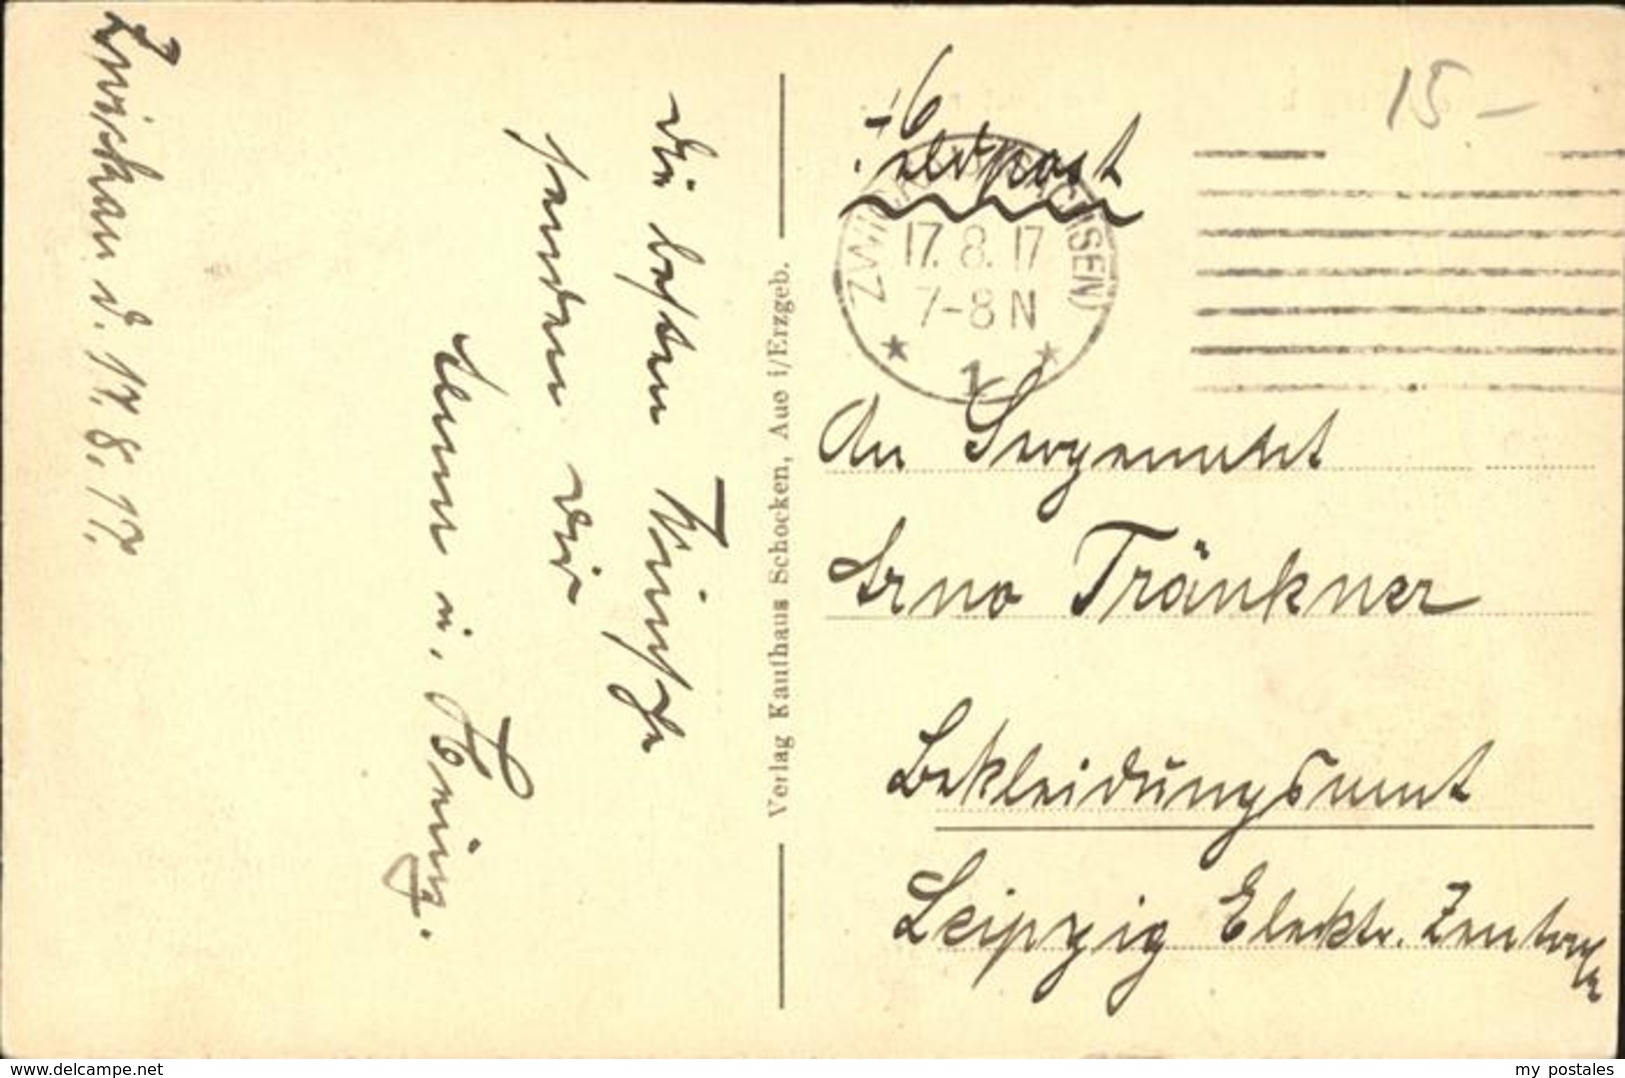 Zwickau d. 17.8.17.
Die besten Wünsche
senden dir
u. Heinz.
Verlag Kaufhaus Schocken, Aue i/Erzgeb.
15 -
Feldpost
ZWICKAU (SACHSEN)
17. 8. 17
7-8 N
1
An Sergeant
Arno Tränkner
Bekleidungsamt
Leipzig Elektr. Zentrale
www.delcampe.net
my_postales